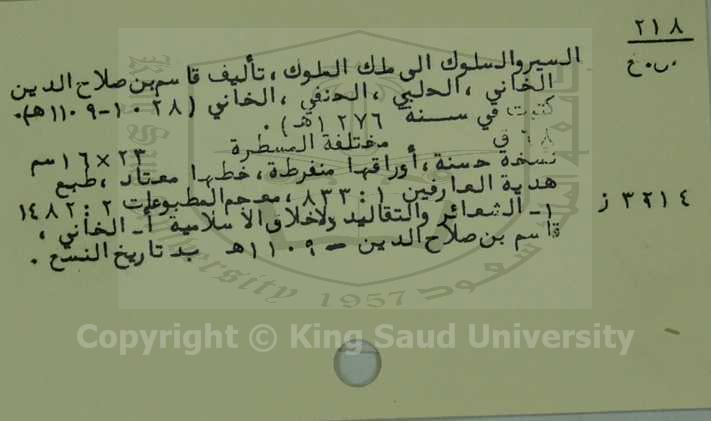 ٢١٨
س.خ
السير والسلوك الى ملك الملوك ، تأليف قاسم بن صلاح الدين
الخاني ، الحلبي ، الحنفي ، الخاني (١٠٢٨-١١٠٩هـ).
كتبت في سنة ١٢٧٦هـ).
٦٨ ق مختلفة المسطرة ٢٣×١٦سم
نسخة حسنة ، أوراقها منفرطة ، خطها معتاد ، طبع
هدية العارفين ١ : ٨٣٣ ، معجم المطبوعات ٢ : ١٤٨٢
٣٢١٤ ز
١- الشعائر والتقاليد ولاخلاق الاسلامية أ- الخاني ،
قاسم بن صلاح الدين - ١١٠٩هـ ب- تاريخ النسخ .
1957
Copyright © King Saud University